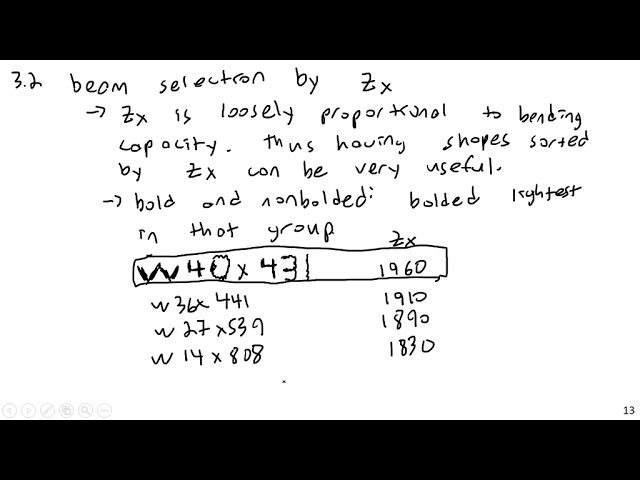 3.2 beam selection by Zx
→ Zx is loosely proportional to bending
capacity. Thus having shapes sorted
by Zx can be very useful.
→ bold and nonbolded: bolded lightest
in that group
Zx
W40x431 1960
W36x441 1910
W27x539 1890
W14x808 1830
13